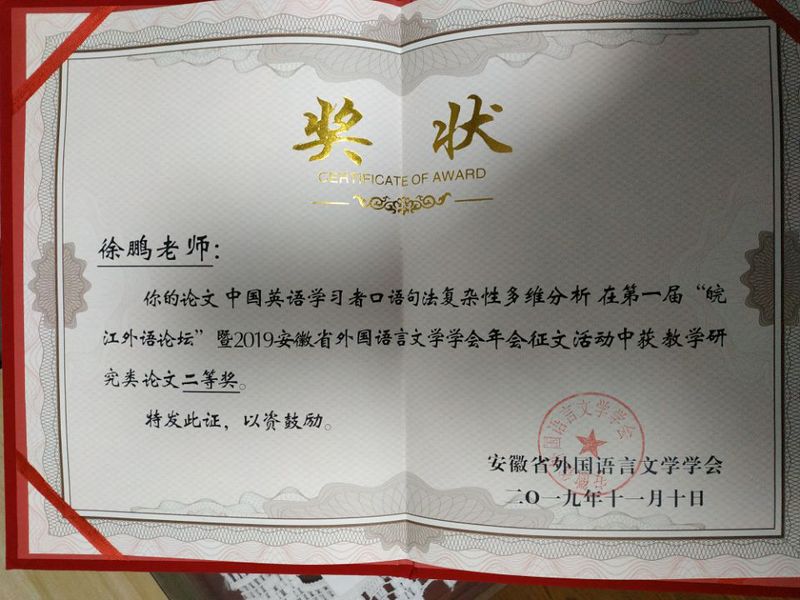 奖 状
CERTIFICATE OF AWARD
徐鹏老师：
你的论文 中国英语学习者口语句法复杂性多维分析 在第一届“皖
江外语论坛”暨2019安徽省外国语言文学学会年会征文活动中获 教学研
究类论文二等奖。
特发此证，以资鼓励。
安徽省外国语言文学学会
二〇一九年十一月十日